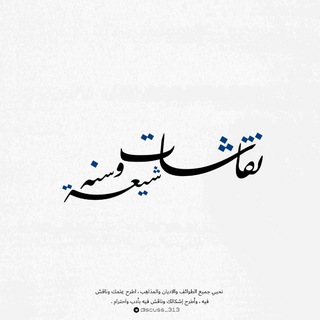 نقاشات
شيعة وسنه
نحيي جميع الطوائف والاديان والمذاهب ، اطرح علمك وناقش
فيه ، وأطرح إشكالك وناقش فيه بأدب واحترام .
discuss_313